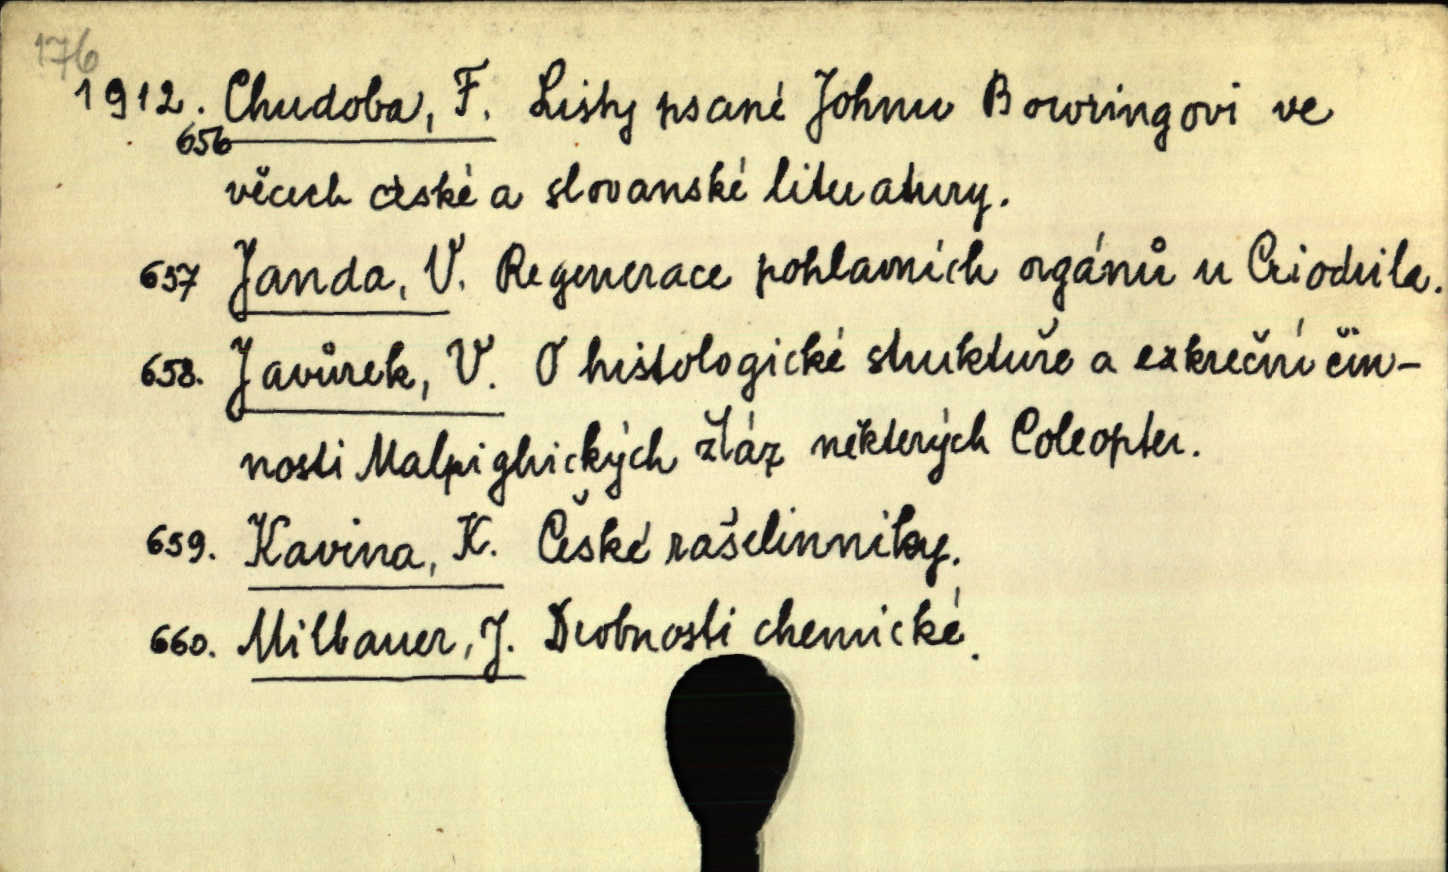 176
1912. Chudoba, F. Listy psané Johnu Bowringovi ve
656
věcech české a slovanské literatury.
657 Janda, V. Regenerace pohlavních orgánů u Criodrila.
658. Javůrek, V. O histologické struktuře a exkreční čin-
nosti Malpighických žláz některých Coleopter.
659. Kavina, K. České rašelinníky.
660. Milbauer, J. Drobnosti chemické.